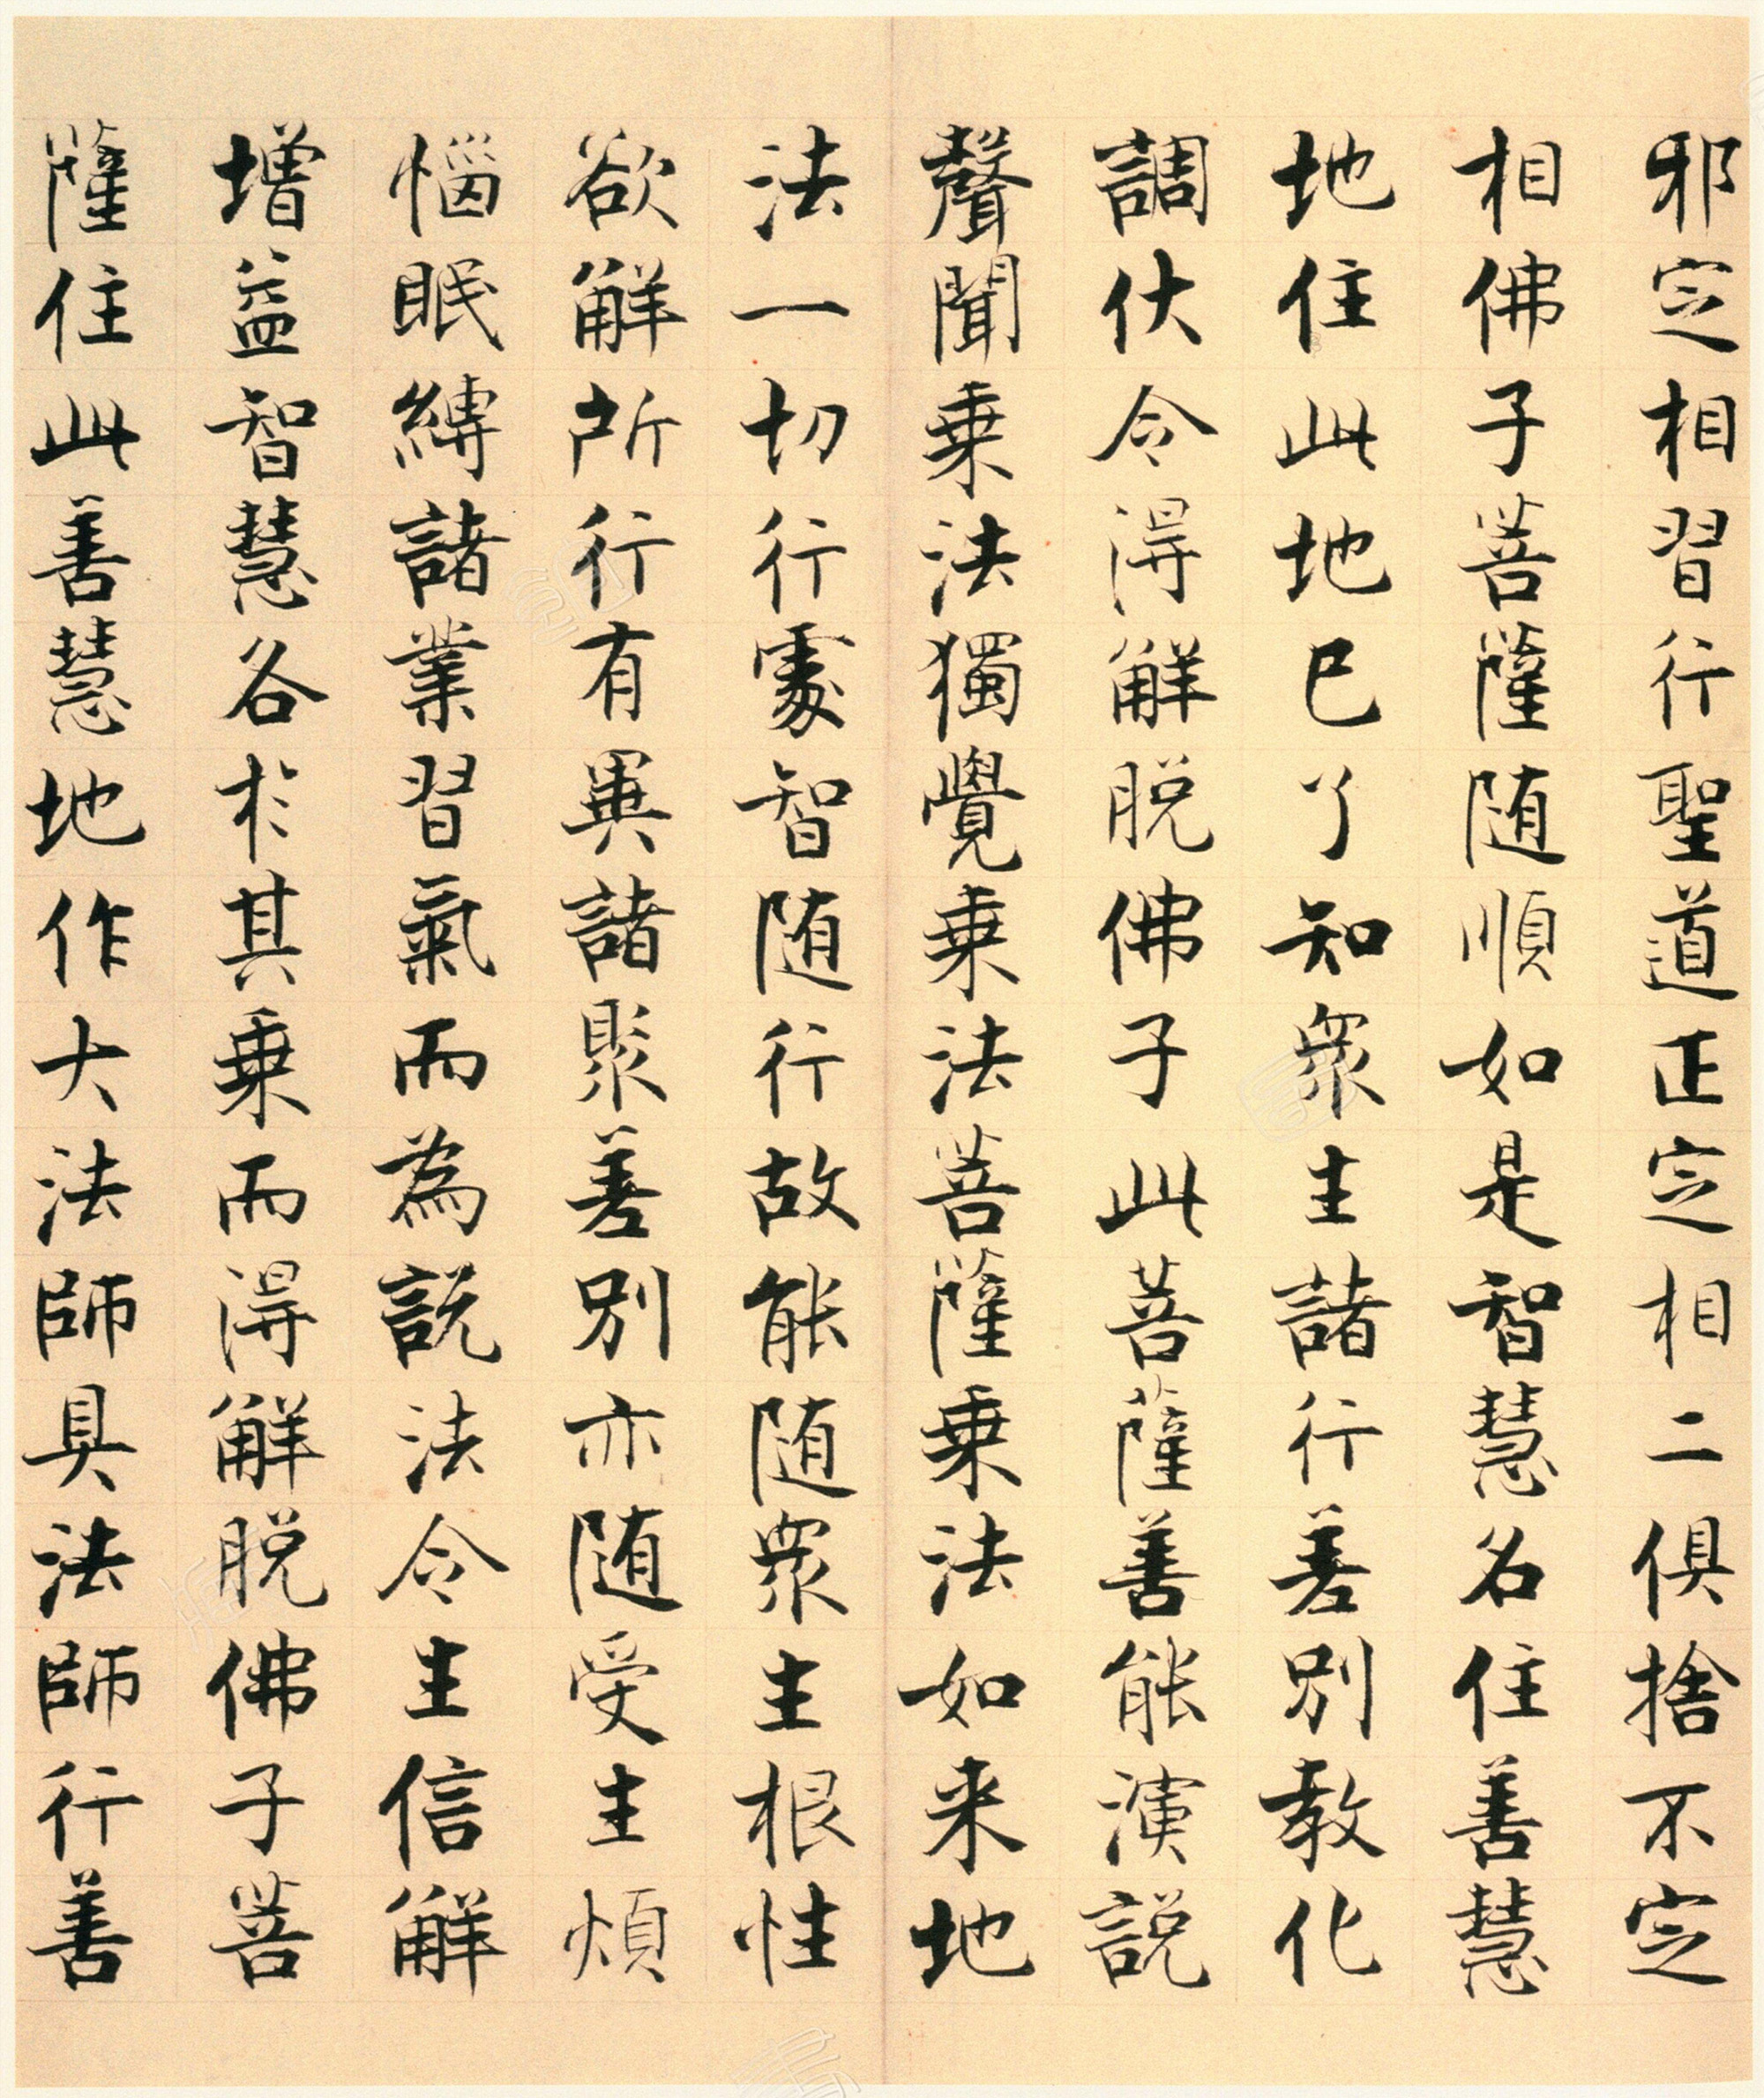 邪定相習行聖道正定相二俱捨不定
相佛子菩薩随順如是智慧名住善慧
地住此地已了知衆生諸行差別教化
調伏令得解脱佛子此菩薩善能演說
聲聞乗法獨覺乗法菩薩乗法如来地
法一切行處智随行故能随衆生根性
欲解所行有異諸聚差別亦随受生煩
惱眠縛諸業習氣而為說法令生信解
增益智慧各於其乗而得解脱佛子菩
薩住此善慧地作大法師具法師行善